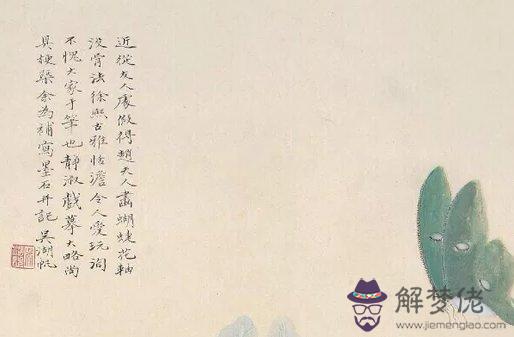 近從友人處假得趙夫人畫蝴蜨花軸
沒骨法徐熙古雅恬澹令人愛玩洵
不愧大家手筆也靜淑戲摹大略尚
具梗槩余為補寫墨石并記 吳湖帆
解梦佬
www.jiemenglao.com